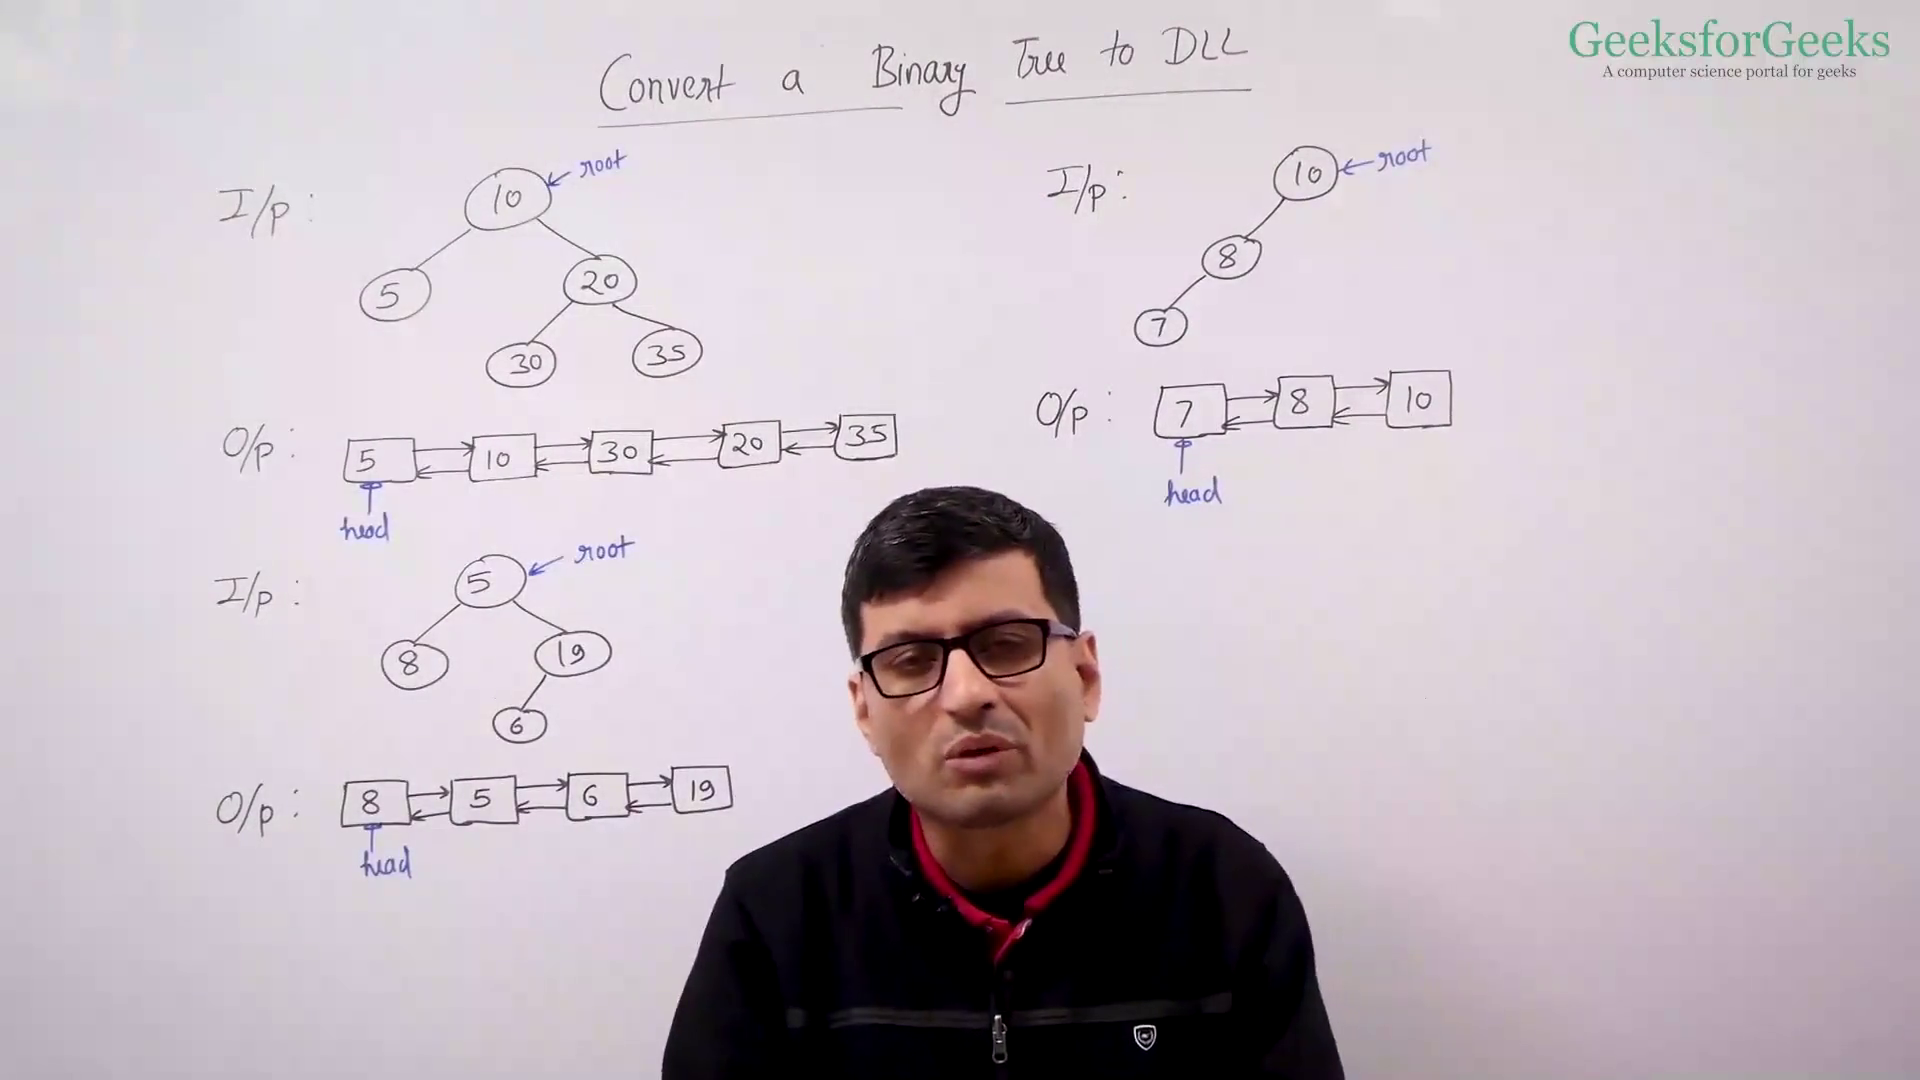 GeeksforGeeks
A computer science portal for geeks
Convert a Binary Tree to DLL
I/p :
10 ← root
5 20
30 35
O/p : 5 10 30 20 35
head
I/p :
10 ← root
8
7
O/p : 7 8 10
head
I/p :
5 ← root
8 19
6
O/p : 8 5 6 19
head